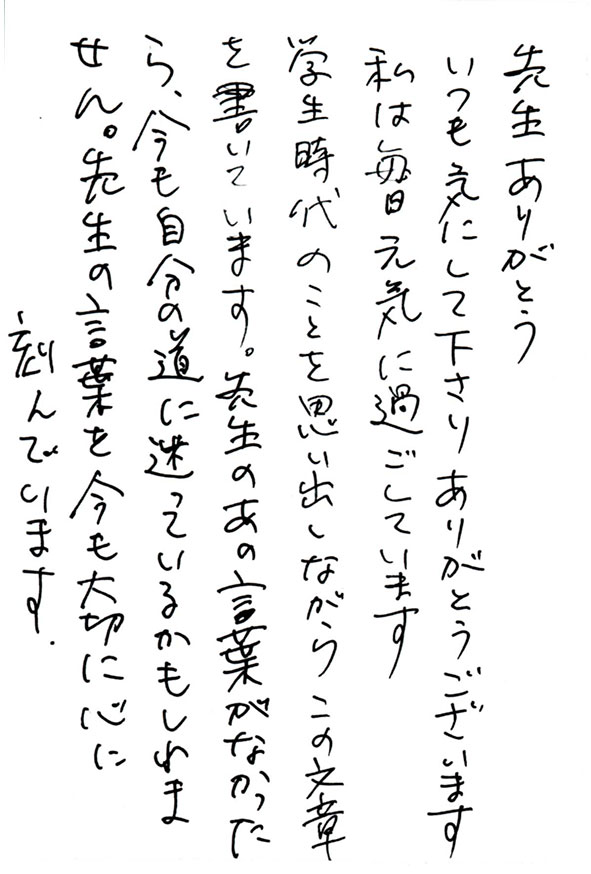 先生ありがとう
いつも気にして下さりありがとうございます
私は毎日元気に過ごしています
学生時代のことを思い出しながらこの文章
を書いています。先生のあの言葉がなかった
ら、今も自分の道に迷っているかもしれま
せん。先生の言葉を今も大切に心に
刻んでいます.